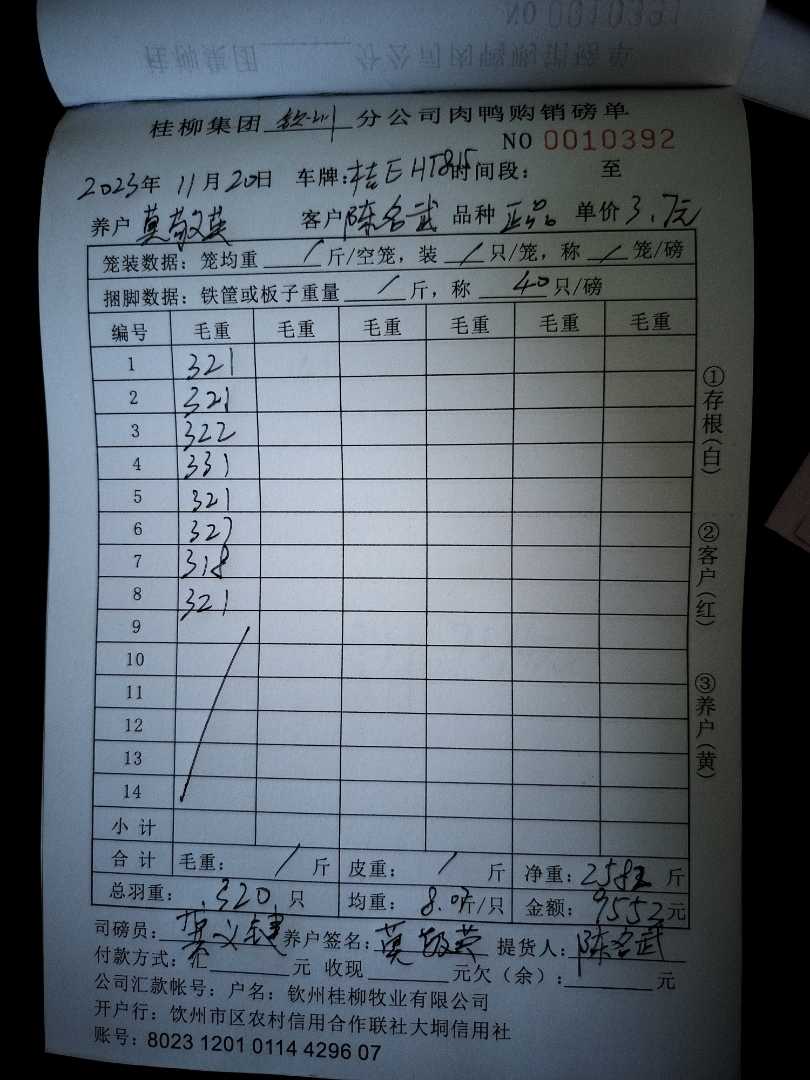 NO 0010391
桂柳集团 分公司肉鸭购销磅单
桂柳集团 钦州 分公司肉鸭购销磅单
NO 0010392
2023年 11月20日 车牌:桂EHT815 时间段: 至
养户 莫敬英 客户 陈名武 品种 正品 单价 3.7元
笼装数据: 笼均重 / 斤/空笼, 装 / 只/笼, 称 / 笼/磅
捆脚数据: 铁筐或板子重量 / 斤, 称 40 只/磅
编号 毛重 毛重 毛重 毛重 毛重 毛重
1 321
2 321
3 322
4 331
5 321
6 327
7 318
8 321
9
10
11
12
13
14
小计
合计 毛重: / 斤 皮重: / 斤 净重: 2582 斤
总羽重: 320 只 均重: 8.07斤/只 金额: 9552元
司磅员: 莫义 养户签名: 莫敬英 提货人: 陈名武
付款方式: 汇 元 收现 元欠(余): 元
公司汇款帐号: 户名: 钦州桂柳牧业有限公司
开户行: 饮州市区农村信用合作联社大垌信用社
账号: 8023 1201 0114 4296 07
①存根(白)
②客户(红)
③养户(黄)